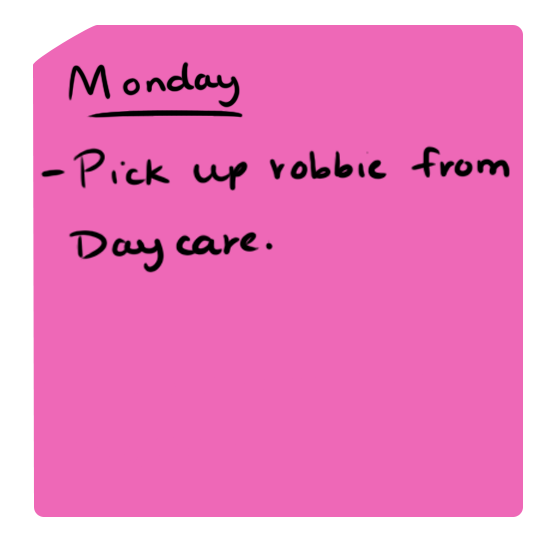 Monday
- Pick up robbie from
Day care.